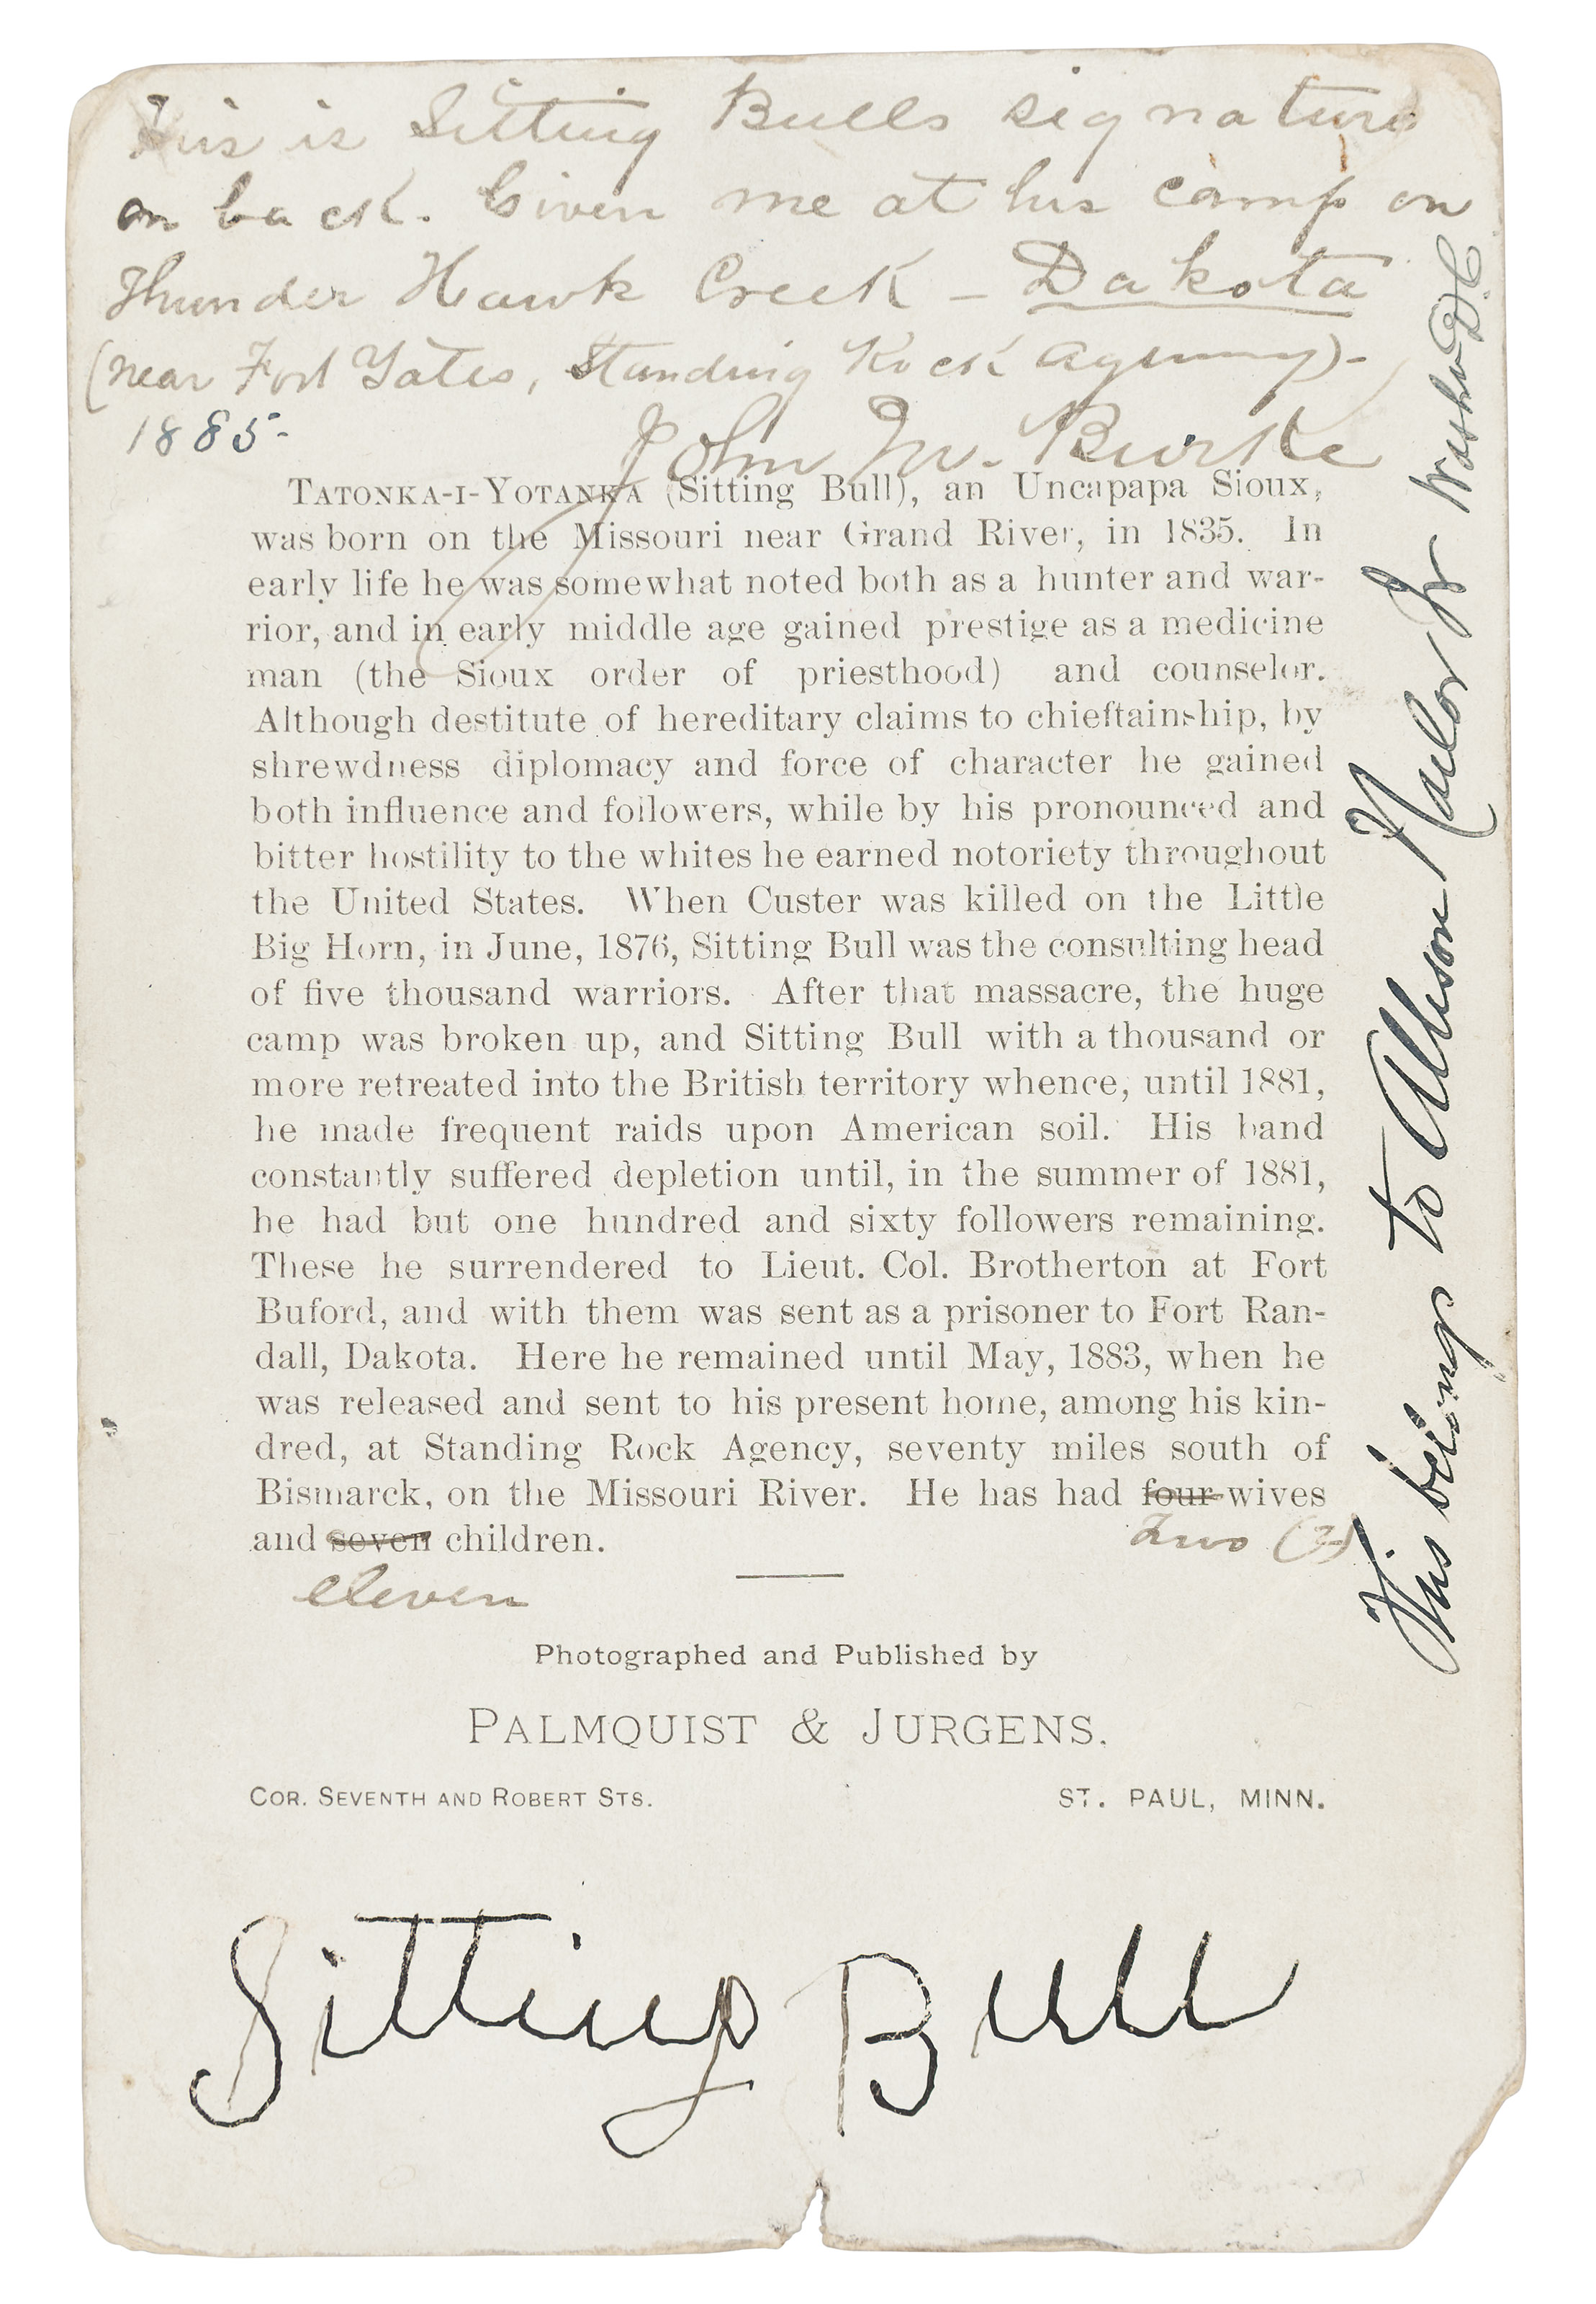 This is Sitting Bulls signature
on back. Given me at his camp on
Thunder Hawk Creek - Dakota
(near Fort Yates, Standing Rock Agency)-
1885-
John M. Burke
TATONKA-I-YOTANKA (Sitting Bull), an Uncapapa Sioux,
was born on the Missouri near Grand River, in 1835. In
early life he was somewhat noted both as a hunter and war-
rior, and in early middle age gained prestige as a medicine
man (the Sioux order of priesthood) and counselor.
Although destitute of hereditary claims to chieftainship, by
shrewdness diplomacy and force of character he gained
both influence and followers, while by his pronounced and
bitter hostility to the whites he earned notoriety throughout
the United States. When Custer was killed on the Little
Big Horn, in June, 1876, Sitting Bull was the consulting head
of five thousand warriors. After that massacre, the huge
camp was broken up, and Sitting Bull with a thousand or
more retreated into the British territory whence, until 1881,
he made frequent raids upon American soil. His band
constantly suffered depletion until, in the summer of 1881,
he had but one hundred and sixty followers remaining.
These he surrendered to Lieut. Col. Brotherton at Fort
Buford, and with them was sent as a prisoner to Fort Ran-
dall, Dakota. Here he remained until May, 1883, when he
was released and sent to his present home, among his kin-
dred, at Standing Rock Agency, seventy miles south of
Bismarck, on the Missouri River. He has had four wives
and seven children.
two (2)
eleven
Photographed and Published by
PALMQUIST & JURGENS.
COR. SEVENTH AND ROBERT STS. ST. PAUL, MINN.
Sitting Bull
This belongs to Allison Nailor Jr Washn D.C